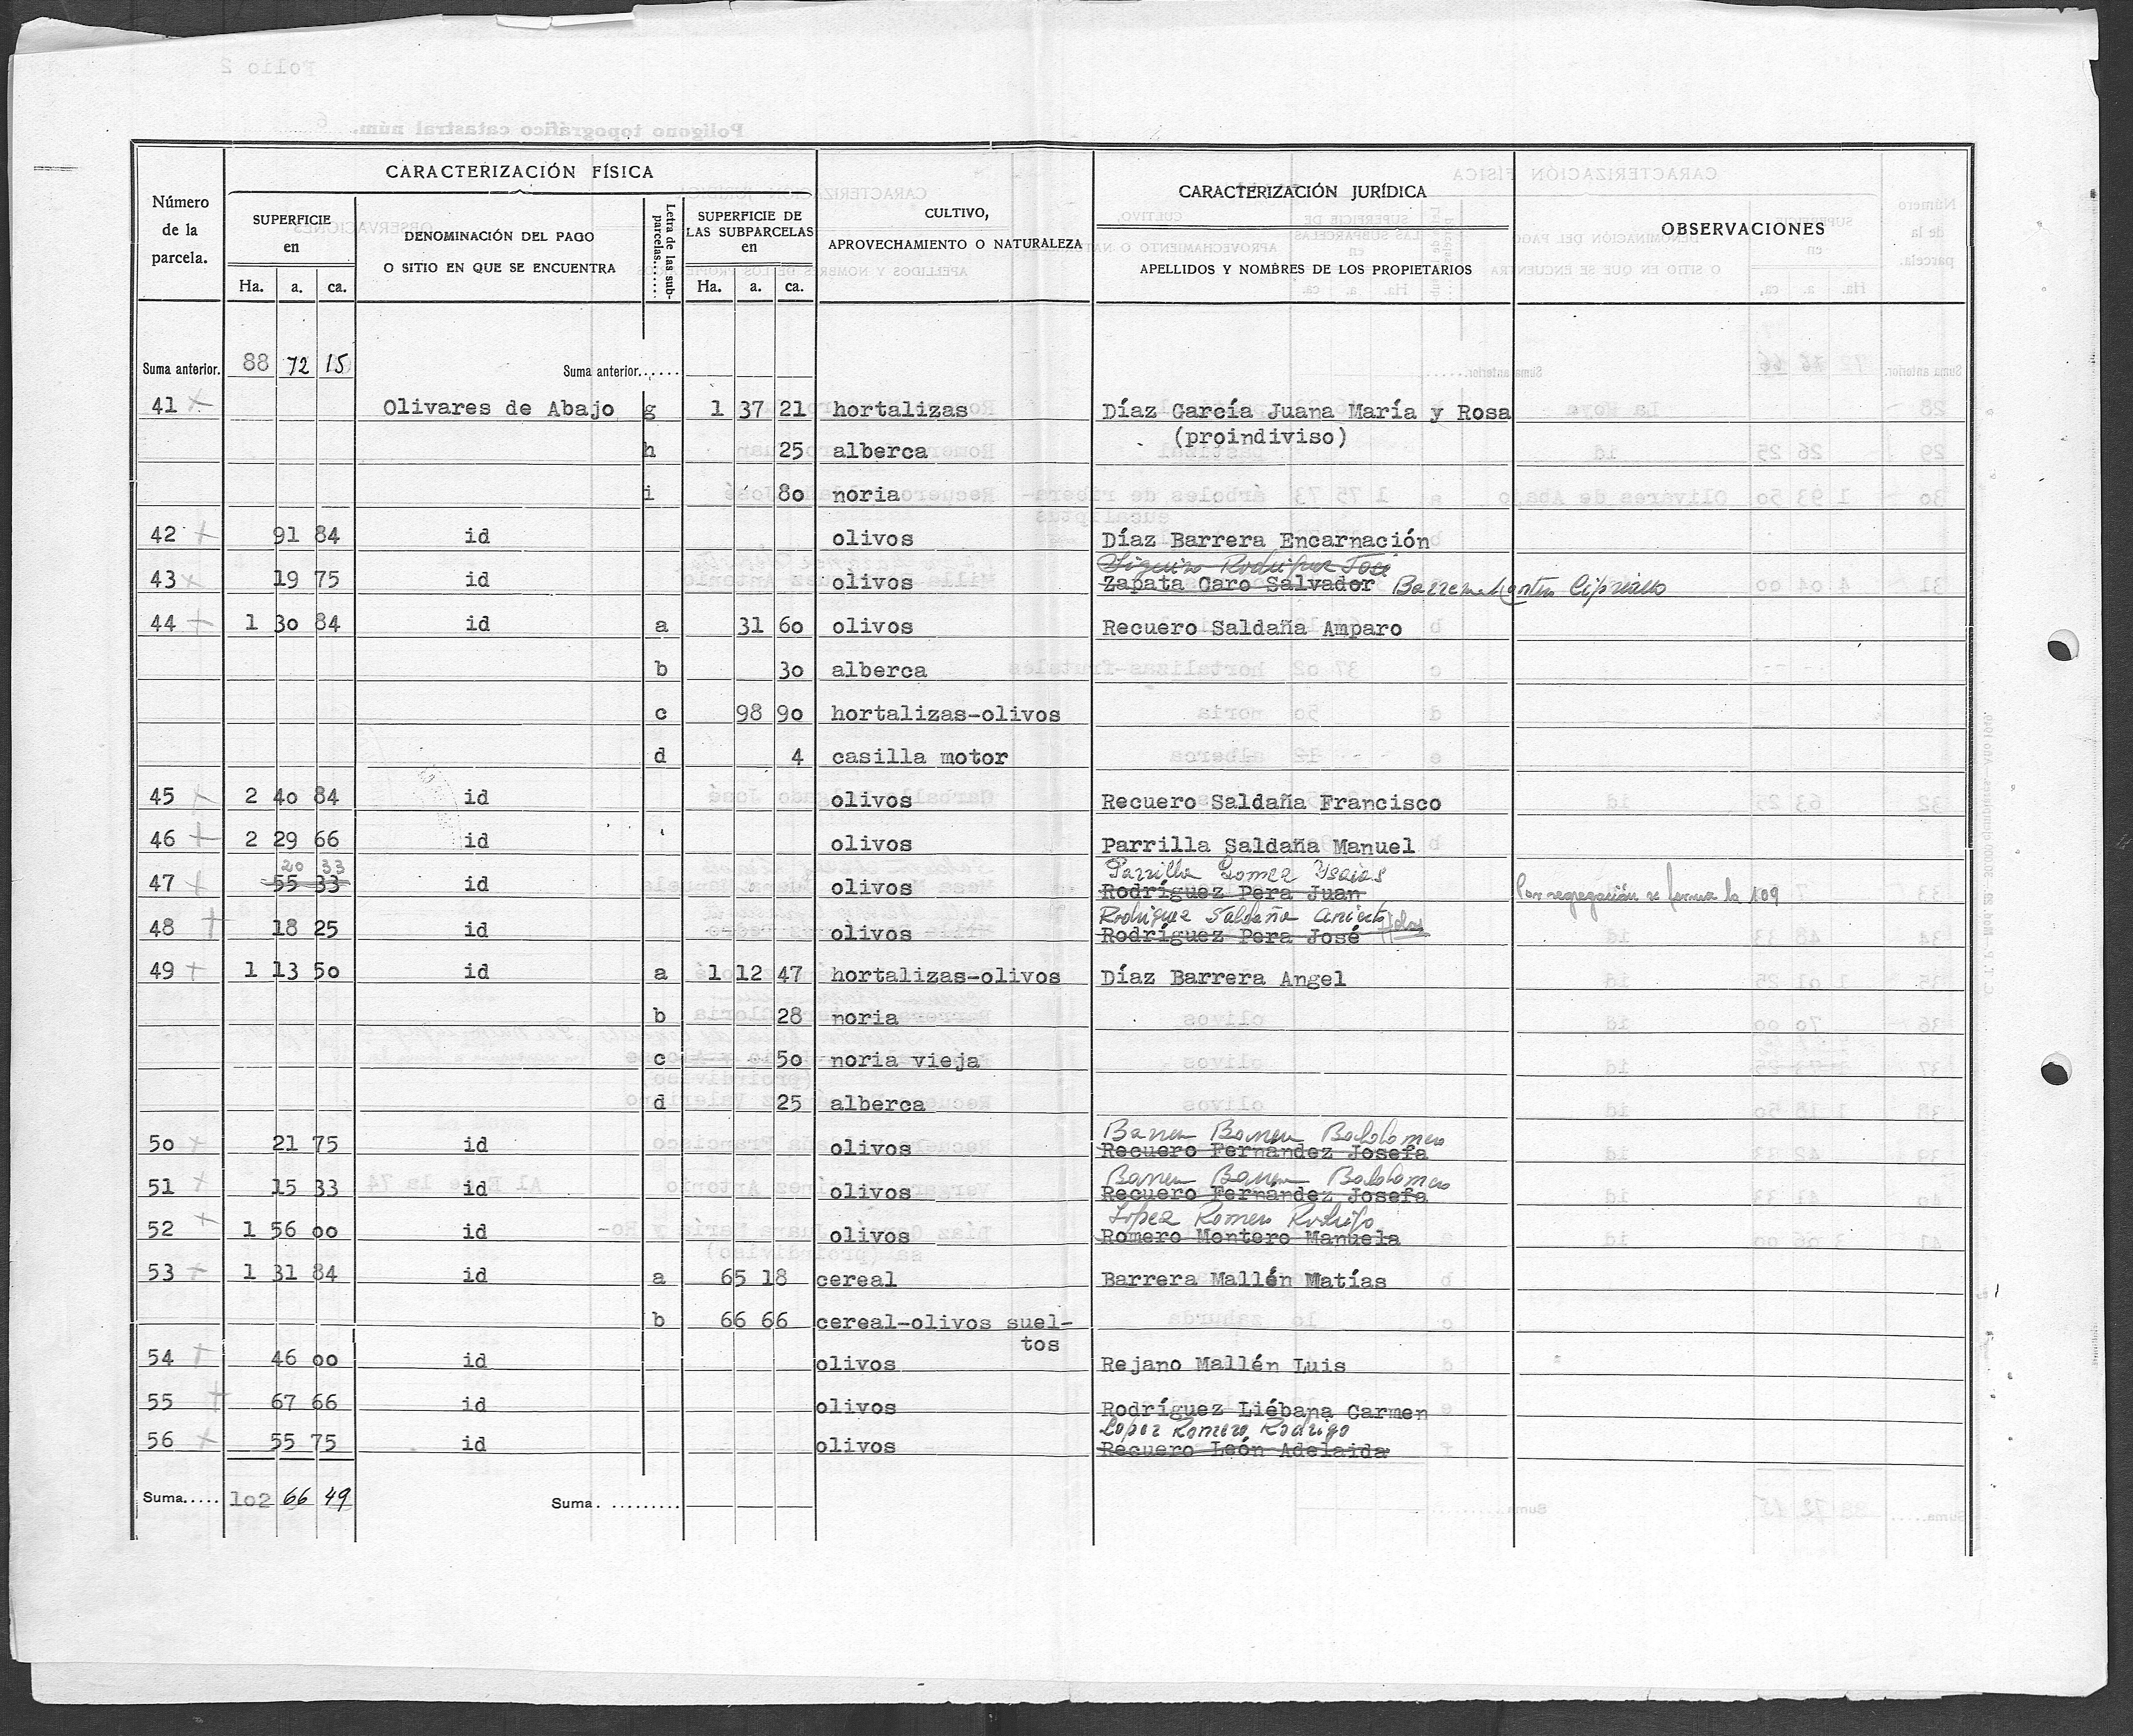 CARACTERIZACIÓN FÍSICA
CARACTERIZACIÓN JURÍDICA
Número de la parcela.
SUPERFICIE en
DENOMINACIÓN DEL PAGO O SITIO EN QUE SE ENCUENTRA
Letra de las sub-parcelas......
SUPERFICIE DE LAS SUBPARCELAS en
CULTIVO, APROVECHAMIENTO O NATURALEZA
APELLIDOS Y NOMBRES DE LOS PROPIETARIOS
OBSERVACIONES
Ha. a. ca. Ha. a. ca.
Suma anterior. 88 72 15 Suma anterior......
41 Olivares de Abajo g 1 37 21 hortalizas Díaz García Juana María y Rosa
(proindiviso)
h 25 alberca
i 80 noria
42 91 84 id olivos Díaz Barrera Encarnación
43 19 75 id olivos Zapata Caro Salvador
44 1 30 84 id a 31 60 olivos Recuero Saldaña Amparo
b 30 alberca
c 98 90 hortalizas-olivos
d 4 casilla motor
45 2 40 84 id olivos Recuero Saldaña Francisco
46 2 29 66 id olivos Parrilla Saldaña Manuel
20 33 Parrilla Gomez Ysaias
47 55 33 id olivos Rodríguez Pera Juan Por segregación se forma la 109
Rodriguez Saldaña Aniceto
48 18 25 id olivos Rodríguez Pera José
49 1 13 50 id a 1 12 47 hortalizas-olivos Díaz Barrera Angel
b 28 noria
c 50 noria vieja
d 25 alberca
Barrera Barrera Bartolomeo
50 21 75 id olivos Recuero Fernández Josefa
Barrera Barrera Bartolomeo
51 15 33 id olivos Recuero Fernández Josefa
Lopez Romero Rodrigo
52 1 56 00 id olivos Romero Montero Manuela
53 1 31 84 id a 65 18 cereal Barrera Mallén Matías
b 66 66 cereal-olivos suel-
tos
54 46 00 id olivos Rejano Mallén Luis
55 67 66 id olivos Rodríguez Liébana Carmen
Lopez Romero Rodrigo
56 55 75 id olivos Recuero León Adelaida
Suma..... 102 66 49 Suma. .........